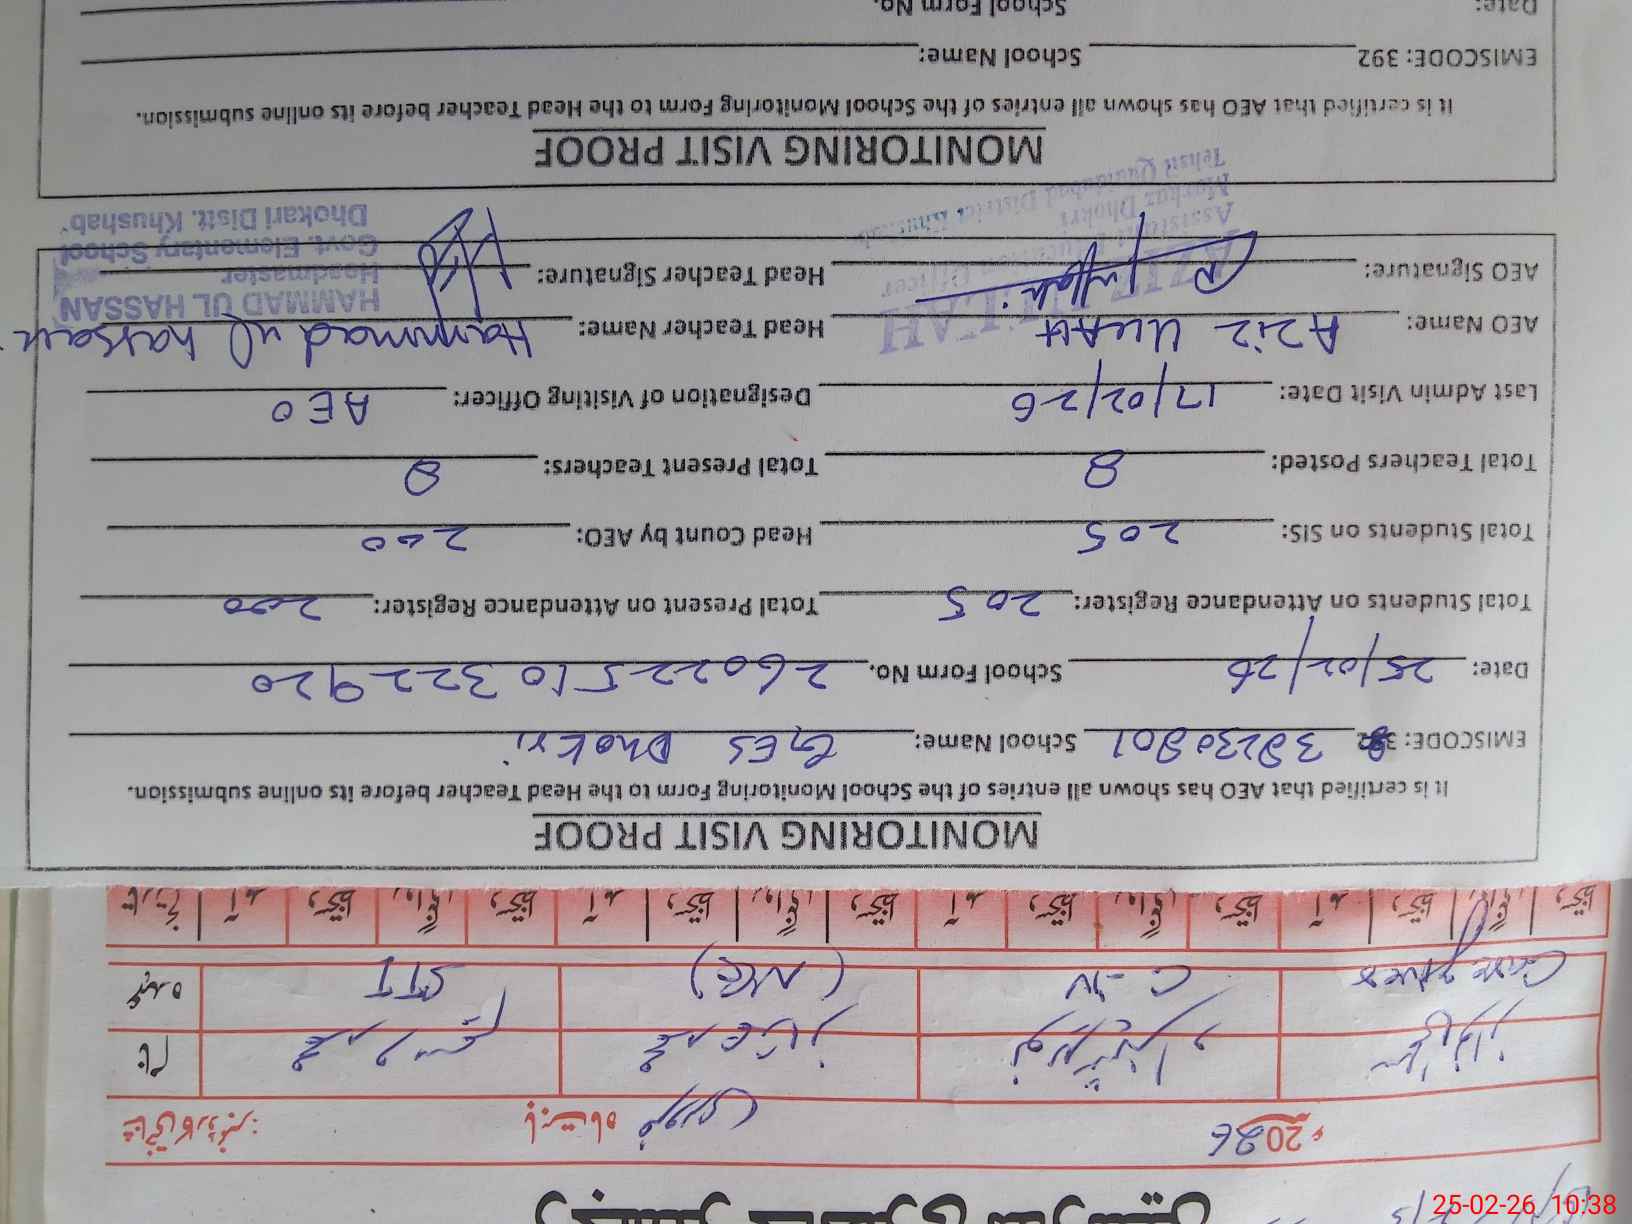 School Form No.
Date:
EMISCODE: 392 School Name:
It is certified that AEO has shown all entries of the School Monitoring Form to the Head Teacher before its online submission.
MONITORING VISIT PROOF
MONITORING VISIT PROOF
It is certified that AEO has shown all entries of the School Monitoring Form to the Head Teacher before its online submission.
EMISCODE: 38230801 School Name: GES Dhokri
Date: 25/02/26 School Form No. 26022510322920
Total Students on Attendance Register: 205 Total Present on Attendance Register: 200
Total Students on SIS: 205 Head Count by AEO: 200
Total Teachers Posted: 8 Total Present Teachers: 8
Last Admin Visit Date: 17/02/26 Designation of Visiting Officer: AEO
AEO Name: Aziz Ullah Head Teacher Name: Hammad ul hassan
AEO Signature: Head Teacher Signature:
AZIZ ULLAH
Assistant Education Officer
Markaz Dhokri
Tehsil Quaidabad District Khushab
HAMMAD UL HASSAN
Headmaster
Govt. Elementary School
Dhokari Distt. Khushab
2026ء بابت ماہ فروری
نام
عہدہ Caregiver C-IV (N/C) STT
تاریخ آمد دستخط روانگی دستخط آمد دستخط روانگی دستخط آمد دستخط روانگی دستخط آمد دستخط روانگی دستخط
25-02-26 10:38